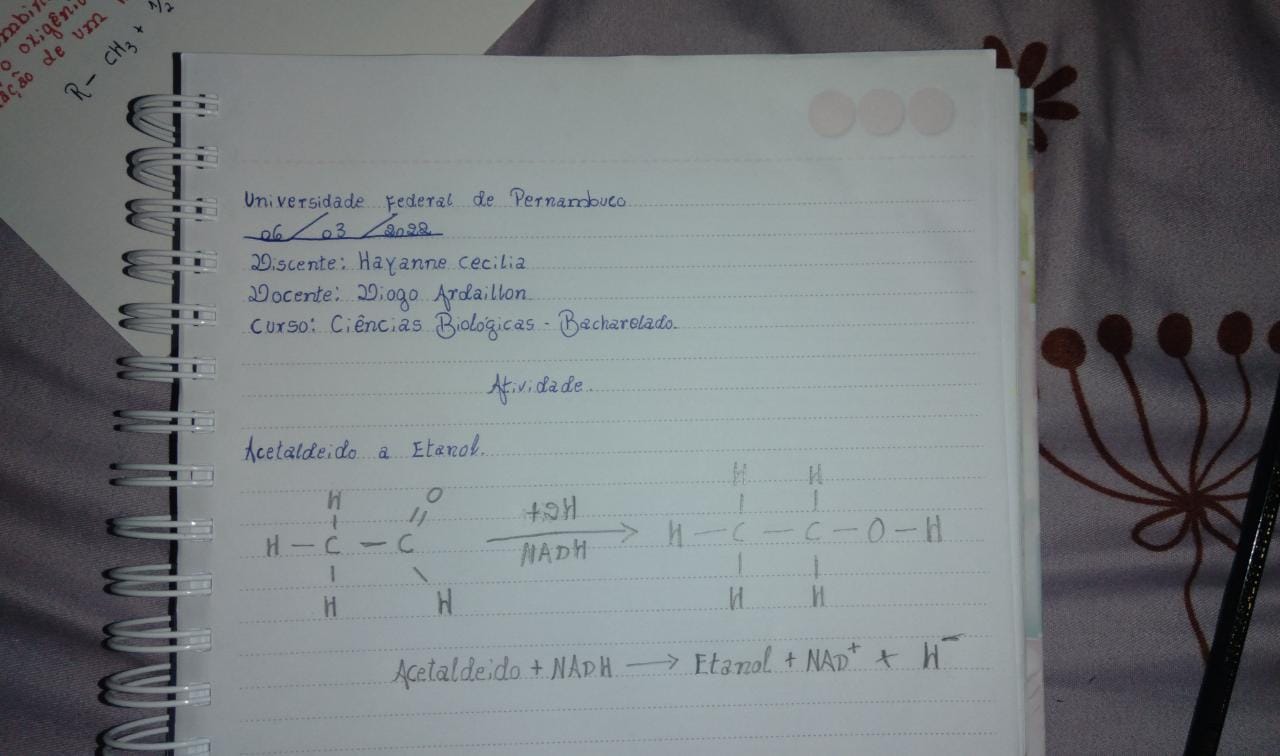 o oxigêni
ação de um
R - CH3 + 1/2
Universidade Federal de Pernambuco
06/03/2022
Discente: Hayanne Cecilia
Docente: Diogo Ardaillon
Curso: Ciências Biológicas - Bacharelado.
Atividade.
Acetaldeido a Etanol.
H O +2H H H
H - C - C NADH H - C - C - O - H
H H H H
Acetaldeido + NADH → Etanol + NAD+ + H-